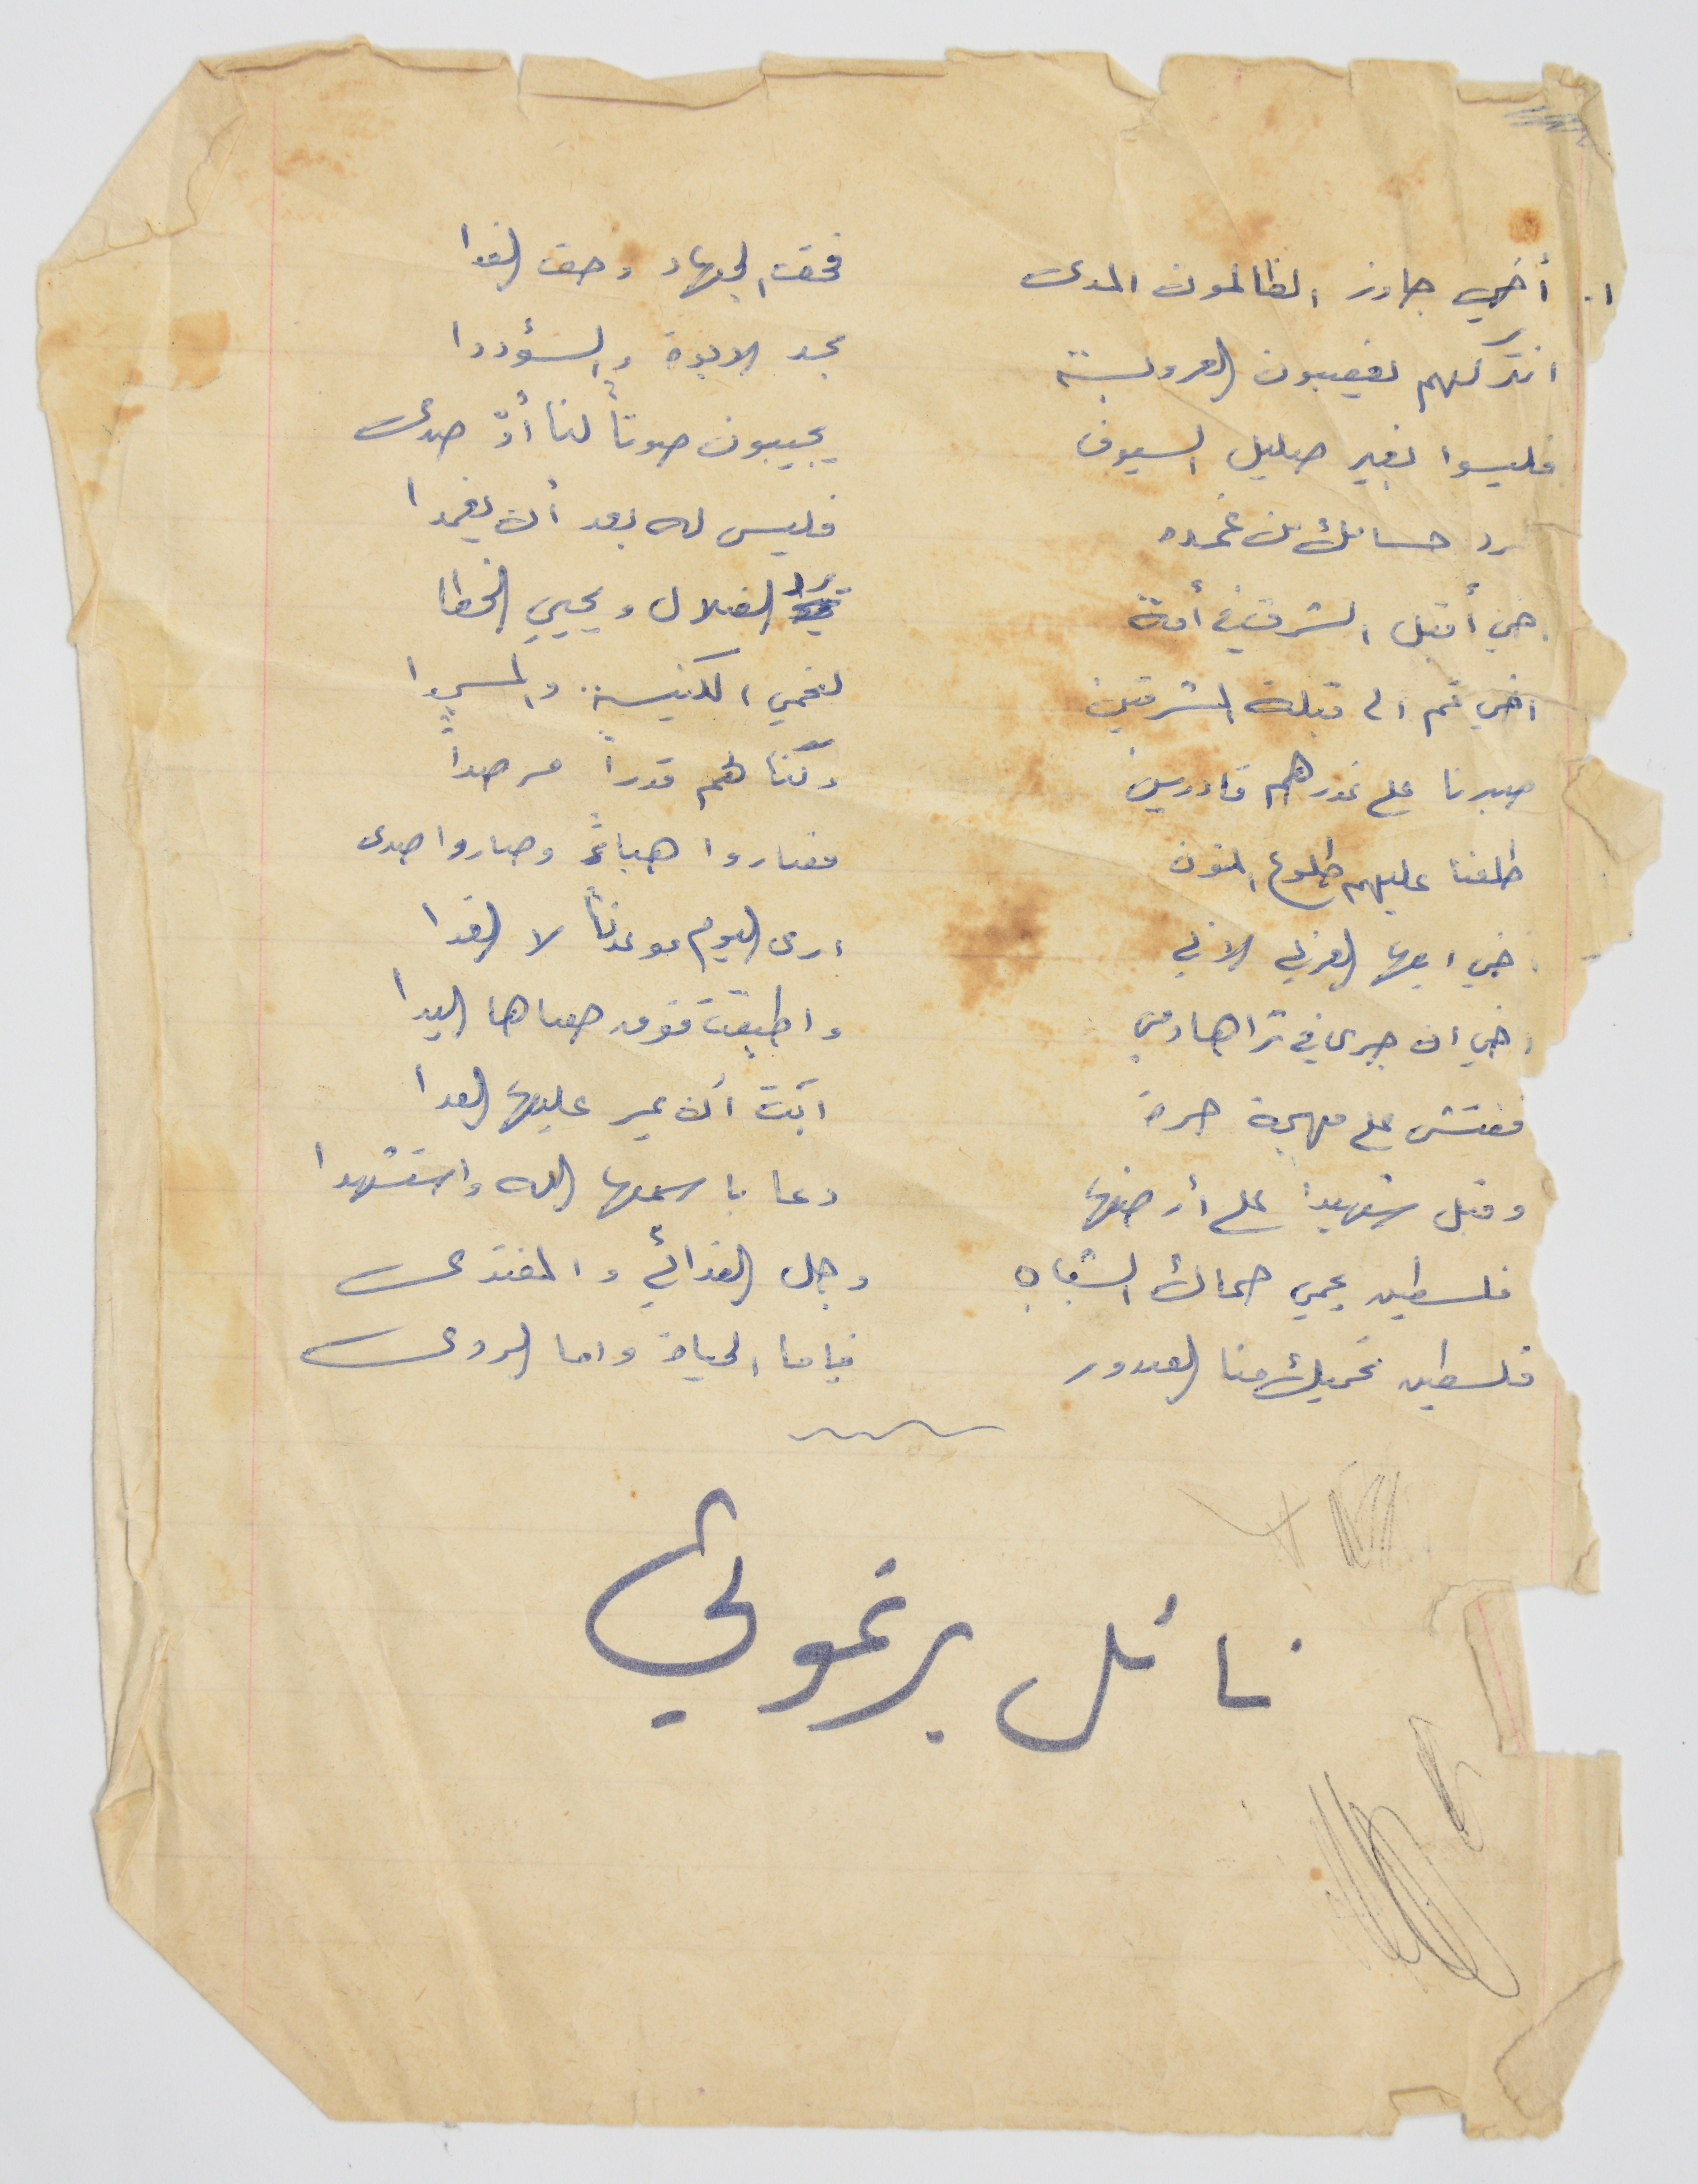 ١. أخي جاوز الظالمون المدى فحق الجهاد وحق الفدا
انتركهم يغصبون العروبة مجد الابوة والسؤددا
فليسوا بغير صليل السيوف يجيبون صوتاً لنا أوّ صدى
رد حسامك من غمده فليس له بعد أن يغمدا
اخي أقبل الشرق في أمة ترد الضلال ويحيي الخطا
اخي قم الى قبلة المشرقين لنحمي الكنيسة والمسجدا
صبرنا على غدرهم قادرين وكنا لهم قدراً مرصداً
طلعنا عليهم طلوع المنون فصاروا هباءً وصاروا صدى
اخي ايها العربي الابي ارى اليوم موعدنا لا الغدا
اخي ان جرى في ثراها دمي واطبقت فوق حصاها اليدا
ففتش على مهجة حرة ابت أن يمر عليها العدا
وقبل شهيدا على أرضها دعا باسمها الله واستشهدا
فلسطين يحمي حماك الشباب وجل الفدائي والمفتدى
فلسطين تحميك منا الصدور فإما الحياة واما الردى
نائل برغوثي